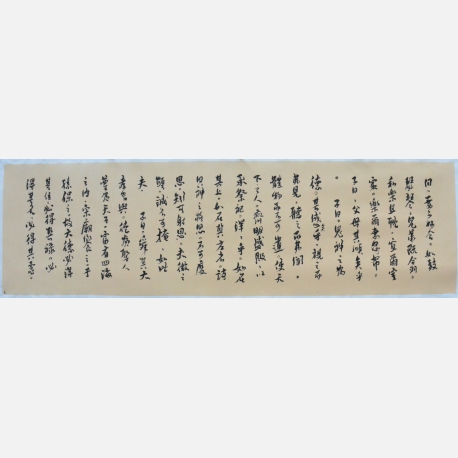 曰。妻子好合。如鼓
瑟琴。兄弟既翕。
和樂且耽。宜爾室
家。樂爾妻帑。
子曰。父母其順矣乎
。子曰。鬼神之為
德。其盛矣乎。視之而
弗見。聽之而弗聞。
體物而不可遺。使天
下之人。齊明盛服。以
承祭祀。洋洋乎。如在
其上。如在其左右。詩
曰。神之格思。不可度
思。矧可射思。夫微之
顯。誠之不可揜。如此
夫。子曰。舜其大
孝也與。德為聖人
尊為天子。富有四海
之內。宗廟饗之。子
孫保之。故大德必得
其位。必得其祿。必
得其名。必得其壽。